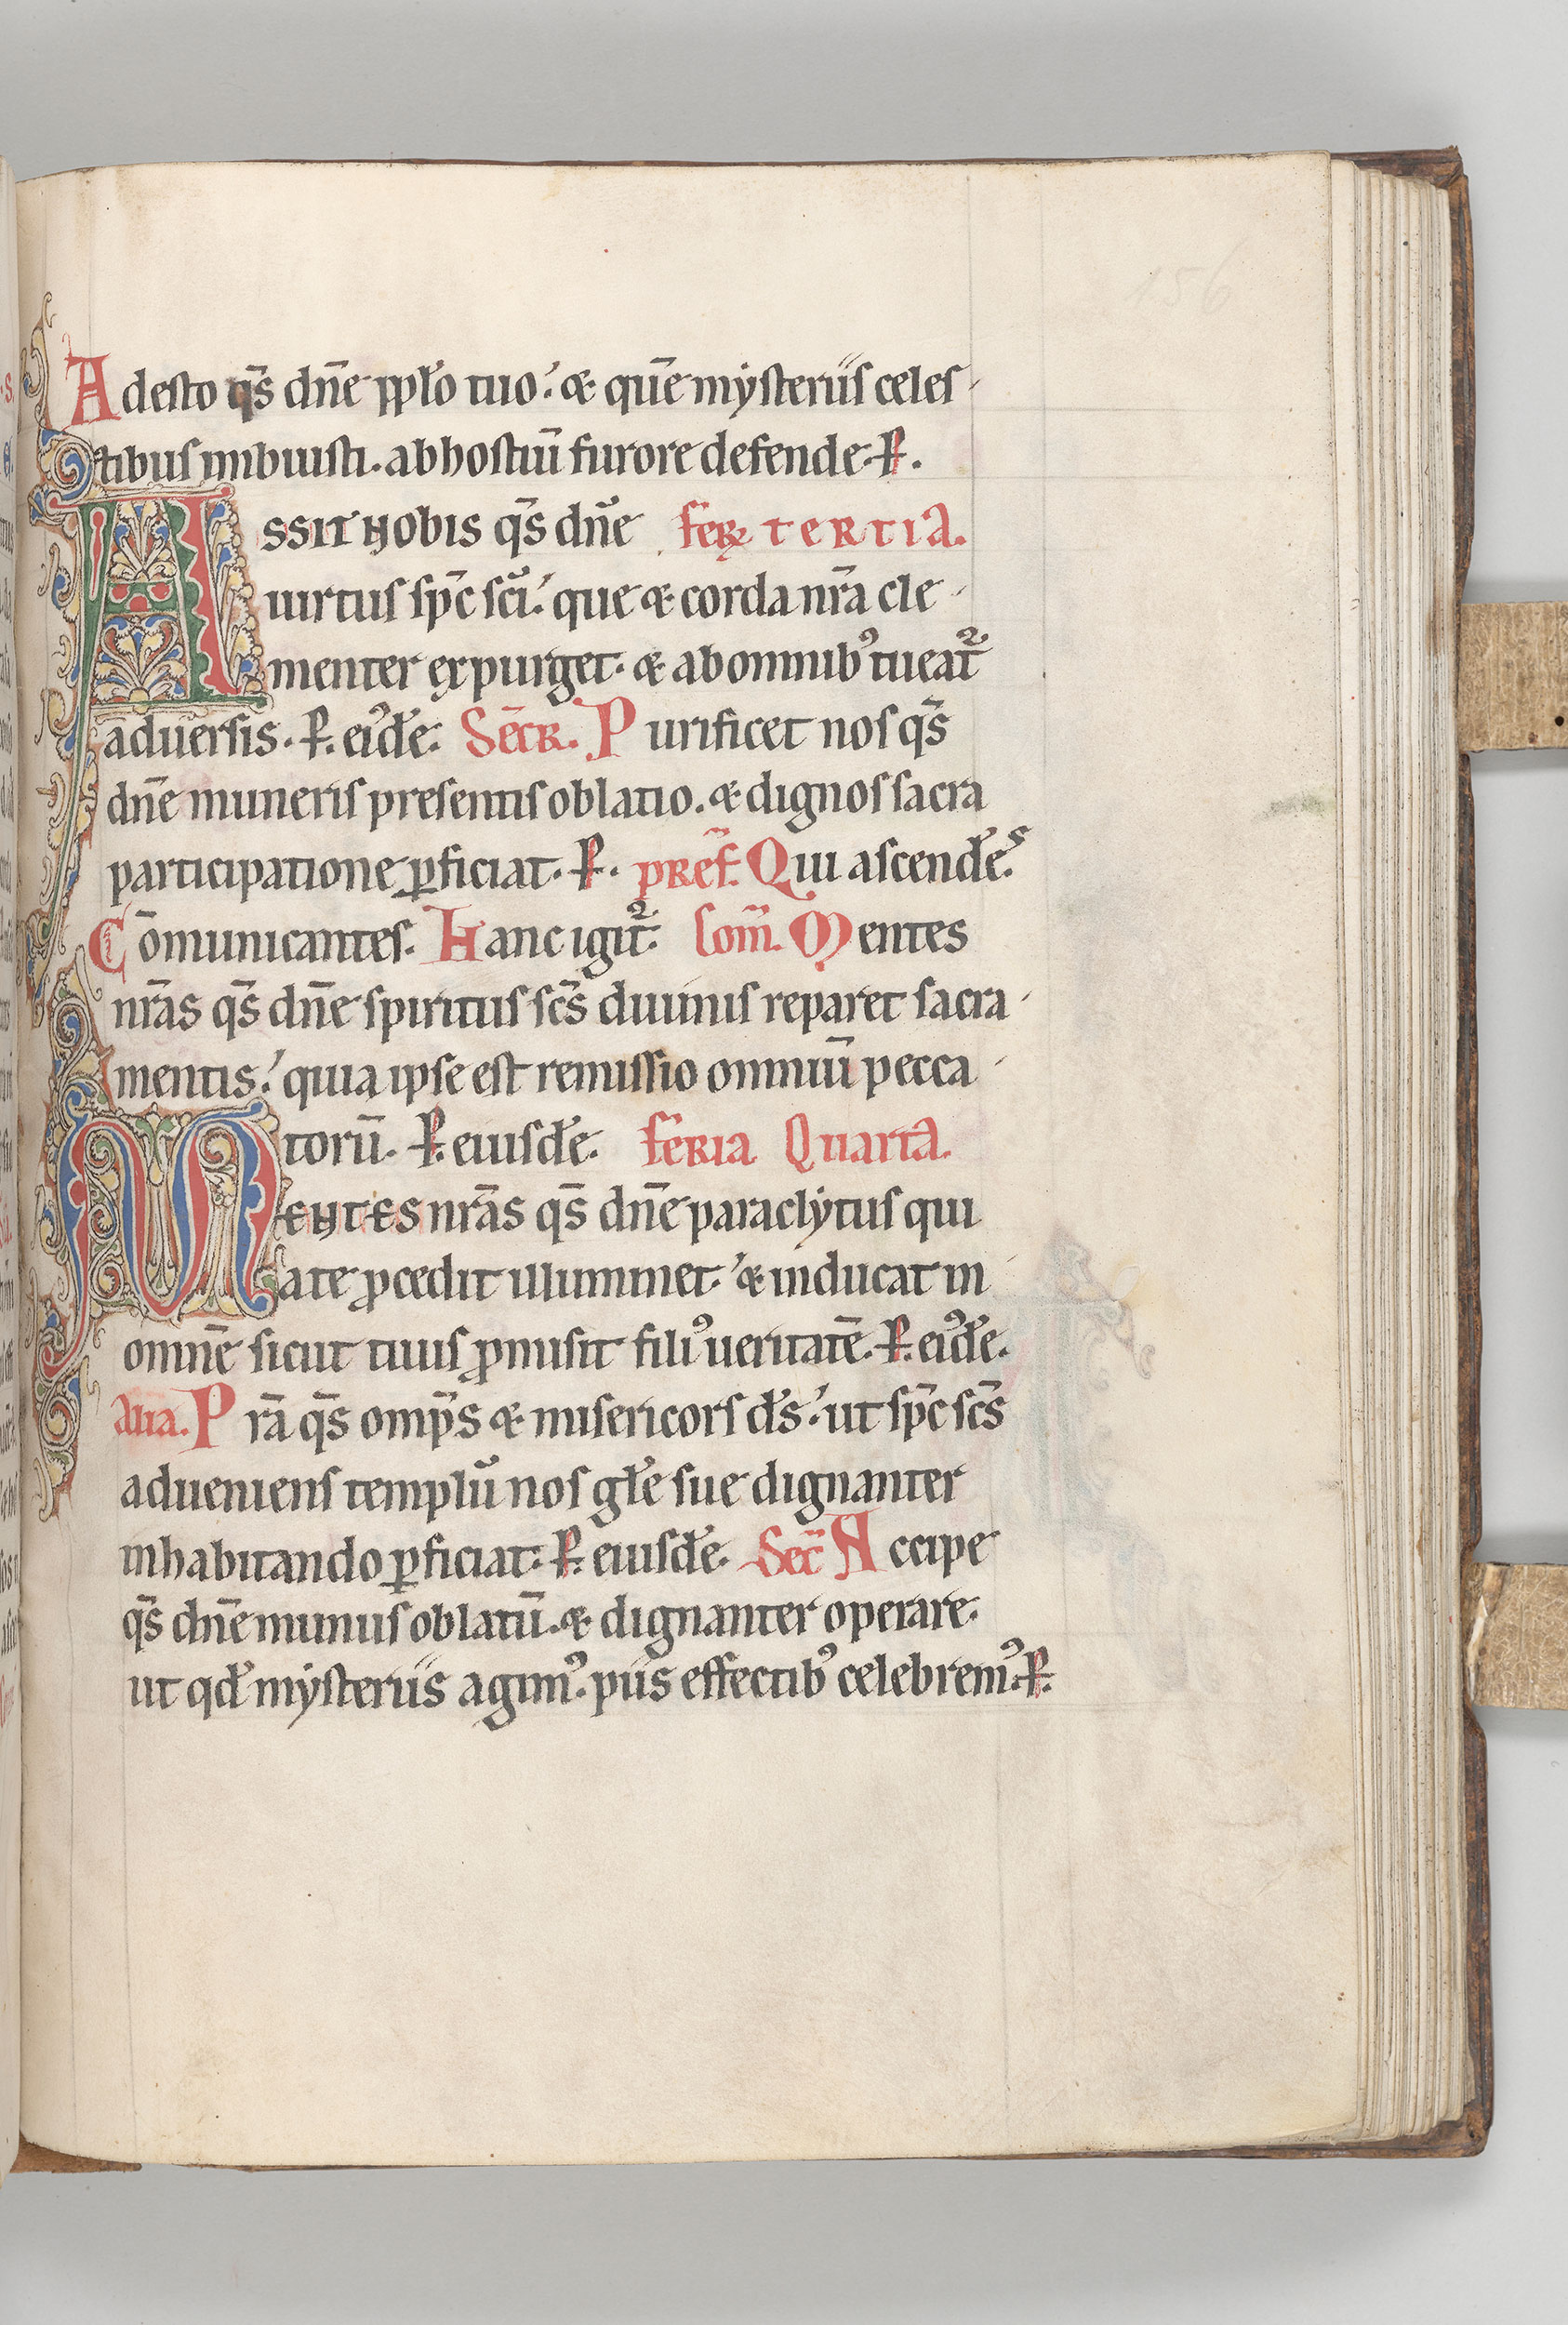 156
Adesto qs̄ dn̄e pplo tuo. & quē mẏsteriis celes-
tibus imbuisti. ab hostiū furore defende. P.
ASSIT NOBIS qs̄ dn̄e FER TERTIA.
uirtus spc̄ sci. que & corda nrā cle-
menter expurget. & ab omnibꝰ tueat᷑
aduersis. P. eiꝰde. SECR. Purificet nos qs̄
dn̄e muneris presentis oblatio. & dignos sacra
participatione ꝑficiat. P. PREF. Qui ascendes
Cōmunicantes. Hanc igit᷑. Com̄. Mentes
nrās qs̄ dn̄e spiritus scs̄ diuinis reparet sacra-
mentis. quia ipse est remissio omniū pecca-
torū. P. eiusde. FERIA Quarta.
MENTES nrās qs̄ dn̄e paraclẏtus qui
a te ꝓcedit illuminet. & inducat in
omnē sicut tuus ꝓmisit filiꝰ ueritatē. P. eiꝰde.
Alia. Prā qs̄ omps̄ & misericors ds. ut spc̄ scs̄
adueniens templū nos gle sue dignanter
inhabitando ꝑficiat. P. eiusde. Sec̄ Accipe
qs̄ dn̄e munus oblatū. & dignanter operare.
ut qd mẏsteriis agimꝰ. piis effectibꝰ celebremꝰ. P.